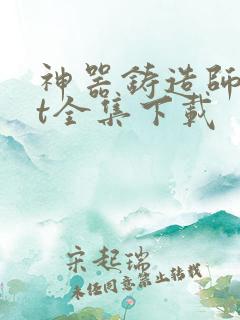 神器铸造师
t全集下载
宋起瑞
未经同意禁止转载